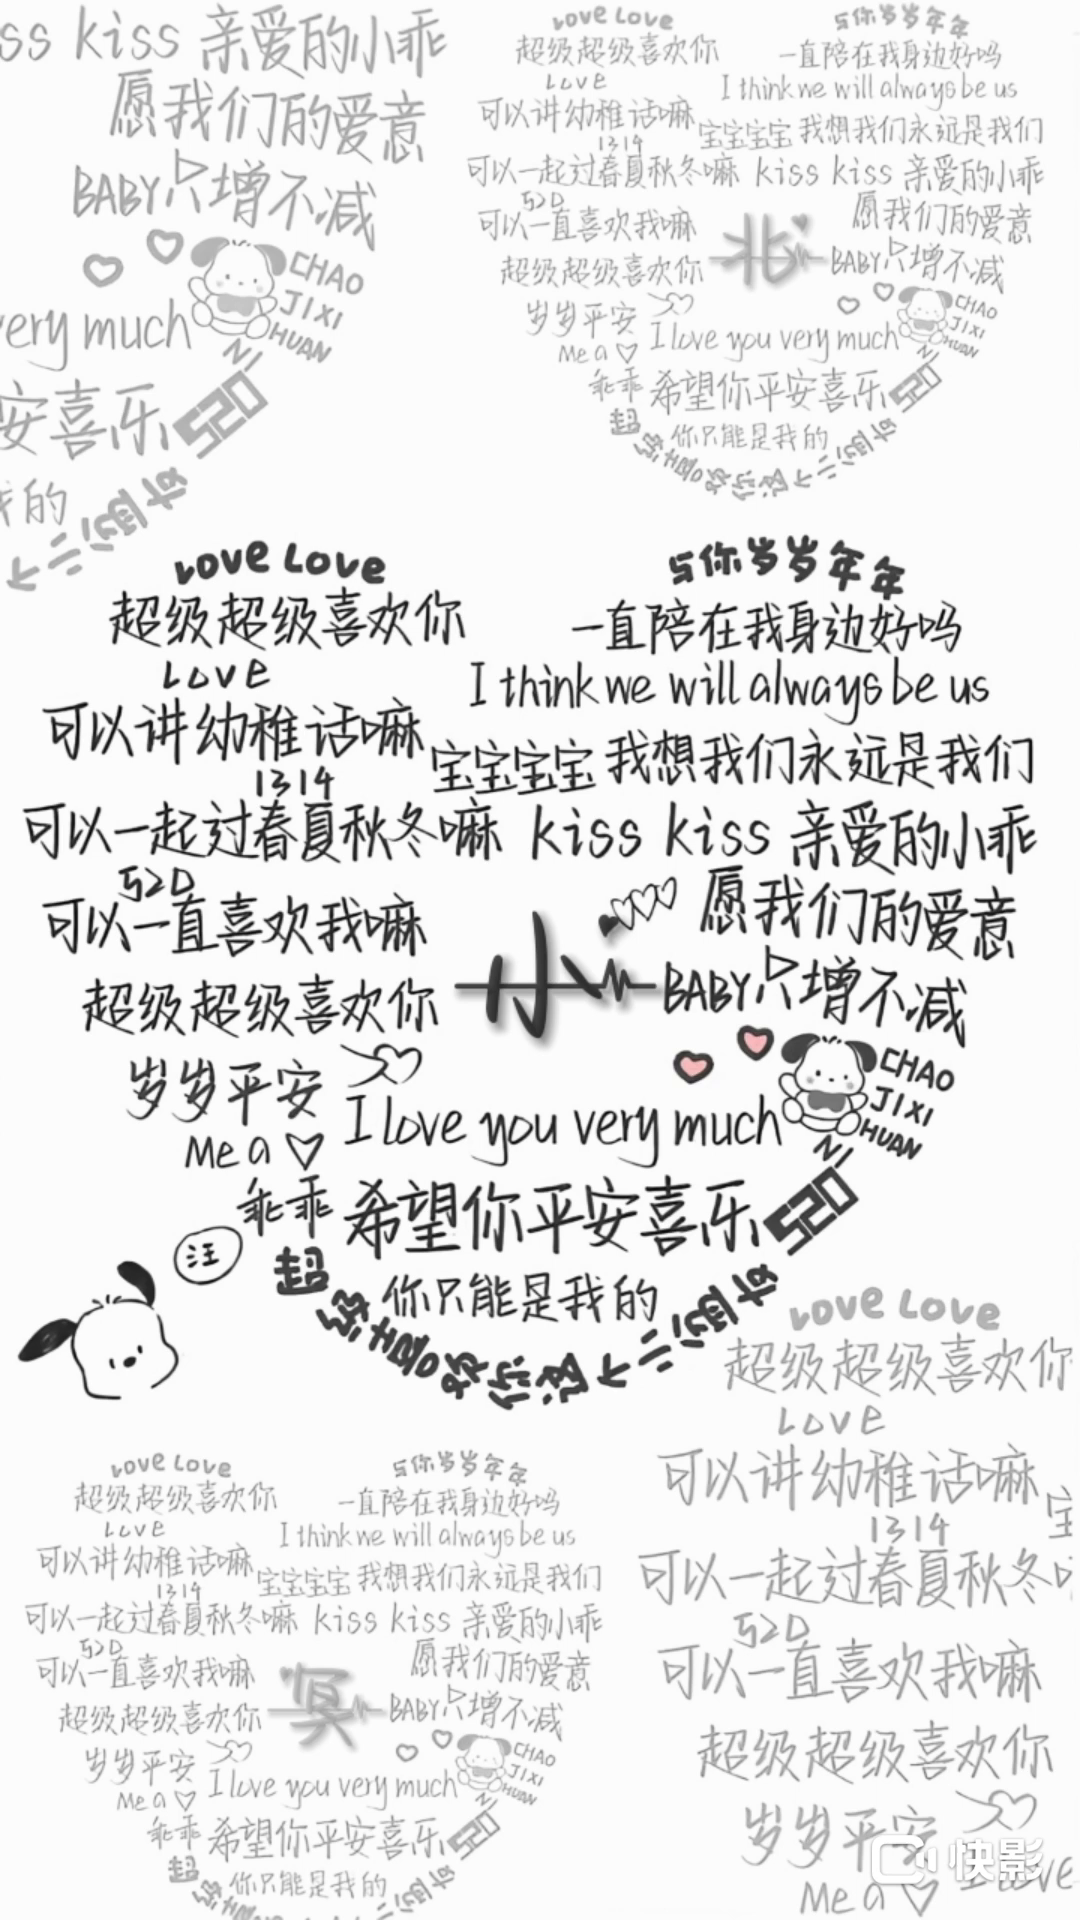 ss kiss 亲爱的小乖
愿我们的爱意
BABY只增不减
CHAO
JIXI
HUAN
NI
very much
安喜乐 520
我的
Love Love
与你岁岁年年
超级超级喜欢你
一直陪在我身边好吗
Love
I think we will always be us
可以讲幼稚话嘛
宝宝宝宝 我想我们永远是我们
1314
可以一起过春夏秋冬嘛 kiss kiss 亲爱的小乖
520
愿我们的爱意
可以一直喜欢我嘛
北
BABY只增不减
超级超级喜欢你
CHAO
JIXI
HUAN
NI
岁岁平安
I love you very much
Me a
乖乖 希望你平安喜乐 520
你只能是我的
超级喜欢你这个小朋友
Love Love
与你岁岁年年
超级超级喜欢你
一直陪在我身边好吗
Love
I think we will always be us
可以讲幼稚话嘛
宝宝宝宝 我想我们永远是我们
1314
可以一起过春夏秋冬嘛 kiss kiss 亲爱的小乖
520
愿我们的爱意
可以一直喜欢我嘛
小
BABY只增不减
超级超级喜欢你
CHAO
JIXI
HUAN
NI
岁岁平安
I love you very much
Me a
乖乖 希望你平安喜乐 520
汪
你只能是我的
Love Love
超级超级喜欢你
Love
可以讲幼稚话嘛
1314
可以一起过春夏秋冬
520
可以一直喜欢我嘛
超级超级喜欢你
岁岁平安
I love
Me a
Love Love
与你岁岁年年
超级超级喜欢你
一直陪在我身边好吗
Love
I think we will always be us
可以讲幼稚话嘛
宝宝宝宝 我想我们永远是我们
1314
可以一起过春夏秋冬嘛 kiss kiss 亲爱的小乖
520
愿我们的爱意
可以一直喜欢我嘛
冥
BABY只增不减
超级超级喜欢你
CHAO
JIXI
HUAN
NI
岁岁平安
I love you very much
Me a
乖乖 希望你平安喜乐 520
你只能是我的
快影